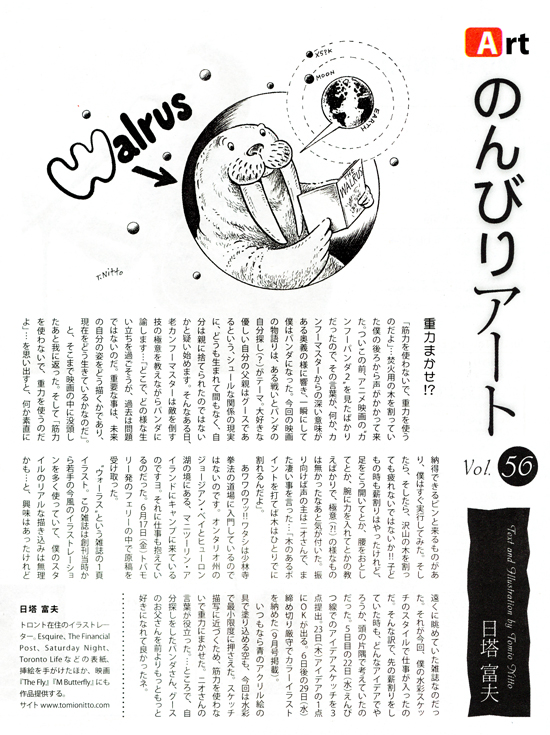 Art
のんびりアート
Vol. 56
Text and Illustration by Tomio Nitto
日塔 富夫
Walrus
XS?K
MOON
EARTH
WALRUS
T. Nitto
重力まかせ!?
「筋力を使わないで、重力を使う
のだよ」…焚火用の木を割ってい
た僕の後ろから声がかかって来
た。ついこの前、アニメ映画の、カ
ンフーパンダ2を見たばかり
だったので、その言葉が、何か、カ
ンフーマスターからの深い意味が
ある奥義の様に響き、一瞬にして
僕はパンダになった。今回の映画
の物語りは、ある戦いとパンダの
自分探し(?)がテーマ。大好きな
優しい自分の父親はグースであ
るという、シュールな関係の現実
に、どうも生まれて間もなく、自
分は親に捨てられたのではない
かと疑い始めます。そんなある日、
老カンフーマスターは敵を倒す
技の極意を教えながらパンダに
諭します…「どこで、どの様な生
い立ちを過ごそうが、過去は問題
ではないのだ。重要な事は、未来
の自分の姿をどう描くかであり、
現在をどう生きているかなのだ」。
と、そこまで映画の中に没頭し
たあと我に返った。そして「筋力
を使わないで、重力を使うのだ
よ」…を思い出すと、何か素直に
納得できるピンと来るものがあ
り、僕はすぐ実行してみた。そし
たら、そしたら、沢山の木を割っ
ても疲れないではないか!!子ど
もの時も薪割りはやったけれど、
足をこう開いてとか、腰をおとし
てとか、腕に力を入れてとかの教
えばかりで、極意(?)の様なもの
は無かったなあと気が付いた。振
り向けば声の主はニオさんで、ま
た凄い事を言った…「木のあるポ
イントを打てば木はひとりでに
割れるんだよ」。
あワワのワッ!!ワタシは少林寺
拳法の道場に入門しているので
はないのです。オンタリオ州の
ジョージアン・ベイとヒューロン
湖の境にある、マニツーリン・ア
イランドにキャンプに来ている
のですヨ。それに仕事も抱えてい
るのだった。6月17日(金)トバモ
リー発のフェリーの中で原稿を
受け取った。
「ウォーラス」という雑誌の1頁
イラスト。この雑誌は創刊当時か
ら若手の今風のイラストレーショ
ンを多く使っていて、僕のスタ
イルのリアルな描き込みは無理
かも…と、興味はあったけれど
遠くに眺めていた雑誌なのだっ
た。それが今回、僕の水彩スケッ
チのスタイルで仕事が入ったの
だ。そんな訳で、先の薪割りをし
ていた時も、どんなアイデアでや
ろうか、頭の片隅で考えていたの
だった。5日目の22日(水)えんぴ
つ線でのアイデアスケッチを3
点提出、23日(木)アイデアの1点
にOKが出る。6日後29日(水)
締め切り厳守でカラーイラスト
を納めた(9月号掲載)。
いつもなら青のアクリル絵の
具で塗り込める空も、今回は水彩
で最小限度に押さえた。スケッチ
描写に近づくため、筋力を使わな
いで重力にまかせた。ニオさんの
言葉が役立った。…ところで、自
分探しをしたパンダさん、グース
のお父さんを前よりもっともっと
好きになれて良かったネ。
日塔 富夫
トロント在住のイラストレー
ター、Esquire, The Financial
Post, Saturday Night,
Toronto Lifeなどの表紙、
挿絵を手がけたほか、映画
『The Fly』『M Butterfly』にも
作品提供する。
サイト www.tomionitto.com